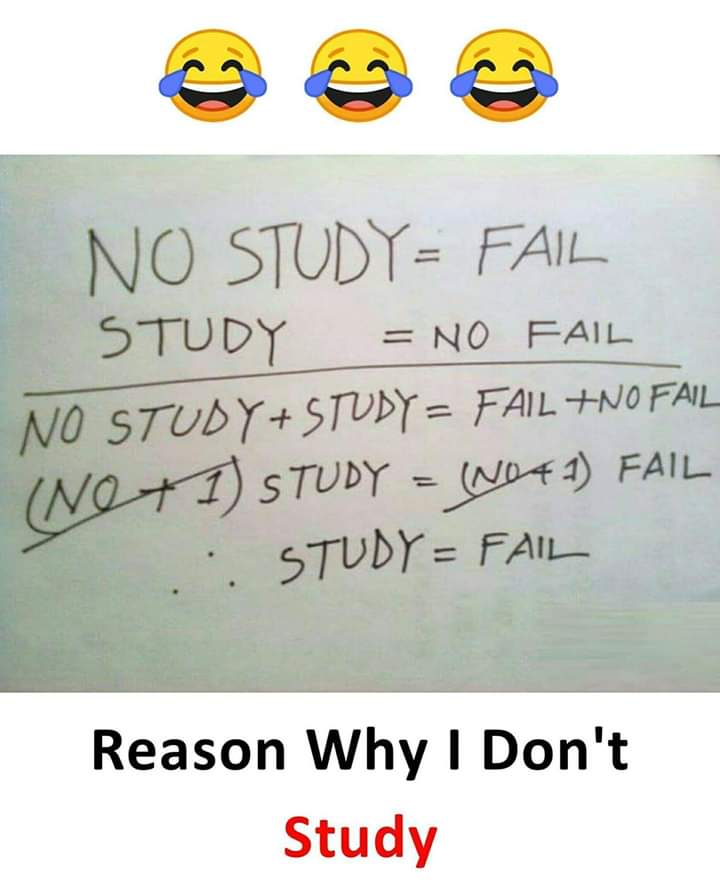 NO STUDY = FAIL
STUDY = NO FAIL
NO STUDY + STUDY = FAIL + NO FAIL
(NO + 1) STUDY = (NO + 1) FAIL
∴ STUDY = FAIL
Reason Why I Don't
Study